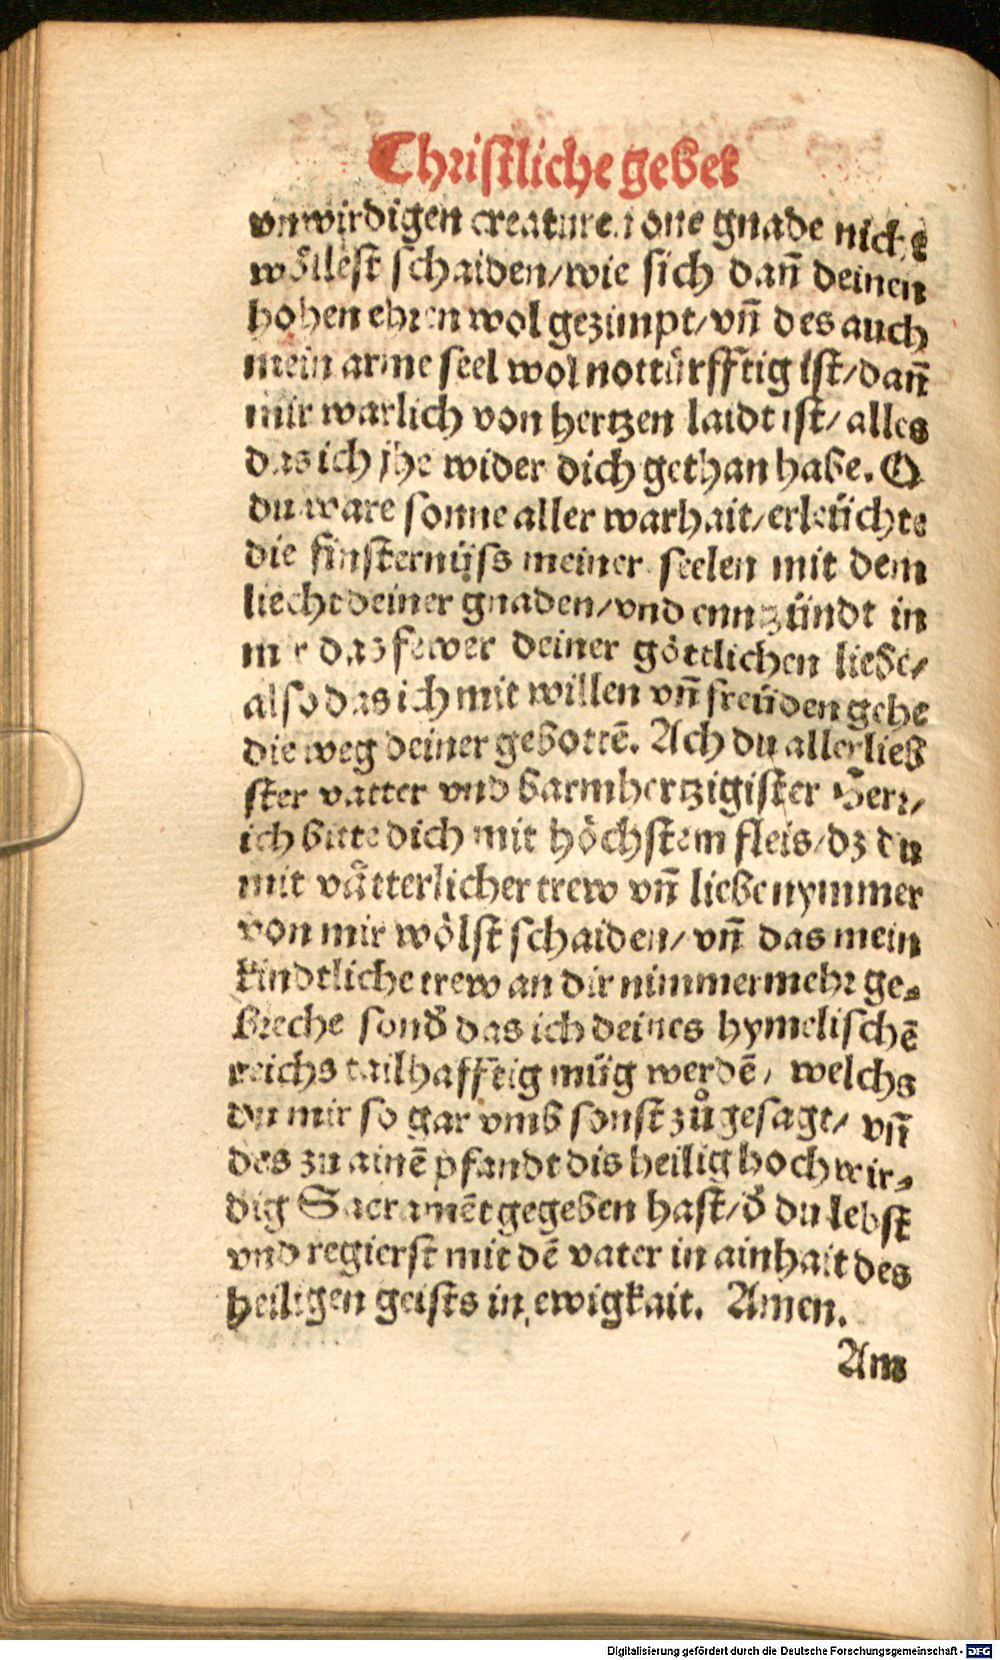 Christliche gebet
vnwirdigen creaturen one gnade nicht
wöllest schaiden/wie sich dañ deinen
hohen ehren wol gezimpt/vñ des auch
mein arme seel wol nottürfftig ist/dañ
mir warlich von hertzen laidt ist/alles
das ich jhe wider dich gethan habe. O
du ware sonne aller warhait/erleüchte
die finsternüss meiner seelen mit dem
liecht deiner gnaden/vnd enntzündt in
mir daz fewer deiner göttlichen liebe/
also das ich mit willen vñ freüden gehe
die weg deiner gebottē. Ach du allerlieb
ster vatter vnd barmhertzigister Herr/
ich bitte dich mit höchstem fleis/dz du
mit vätterlicher trew vñ liebe nymmer
von mir wölst schaiden/vñ das mein
kindtliche trew an dir nimmermehr ge⸗
breche sond̄ das ich deines hymelischē
reichs tailhafftig müg werdē/ welchs
du mir so gar vmb sonst zů gesagt/ vñ
des zu ainē pfandt dis heilig hochwir⸗
dig Sacramēt gegeben hast/d̄ du lebst
vnd regierst mit dē vater in ainhait des
heiligen geists in ewigkait. Amen.
Am
Digitalisierung gefördert durch die Deutsche Forschungsgemeinschaft - DFG